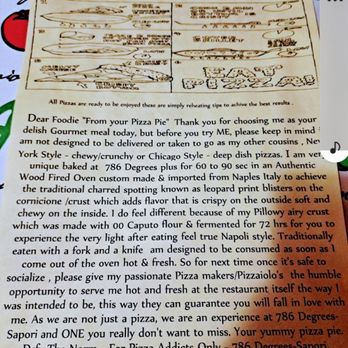 All Pizzas are ready to be enjoyed these are simply reheating tips to achive the best results .
Dear Foodie "From your Pizza Pie" Thank you for choosing me as your
delish Gourmet meal today, but before you try ME, please keep in mind
am not designed to be delivered or taken to go as my other cousins , Ne
York Style - chewy/crunchy or Chicago Style - deep dish pizzas. I am ver
unique baked at 786 Degrees plus for 60 to 90 sec in an Authentic
Wood Fired Oven custom made & imported from Naples Italy to achieve
the traditional charred spotting known as leopard print blisters on the
cornicione /crust which adds flavor that is crispy on the outside soft and
chewy on the inside. I do feel different because of my Pillowy airy crust
which was made with 00 Caputo flour & fermented for 72 hrs for you to
experience the very light after eating feel true Napoli style. Traditionally
eaten with a fork and a knife am designed to be consumed as soon as I
come out of the oven hot & fresh. So for next time once it's safe to
socialize , please give my passionate Pizza makers/Pizzaiolo's the humble
opportunity to serve me hot and fresh at the restaurant itself the way I
was intended to be, this way they can guarantee you will fall in love with
me. As we are not just a pizza, we are an experience at 786 Degrees-
Sapori and ONE you really don't want to miss. Your yummy pizza pie.
Defy The Norm - For Pizza Addicts Only - 786 Degrees-Sapori
EAT
PIZZA